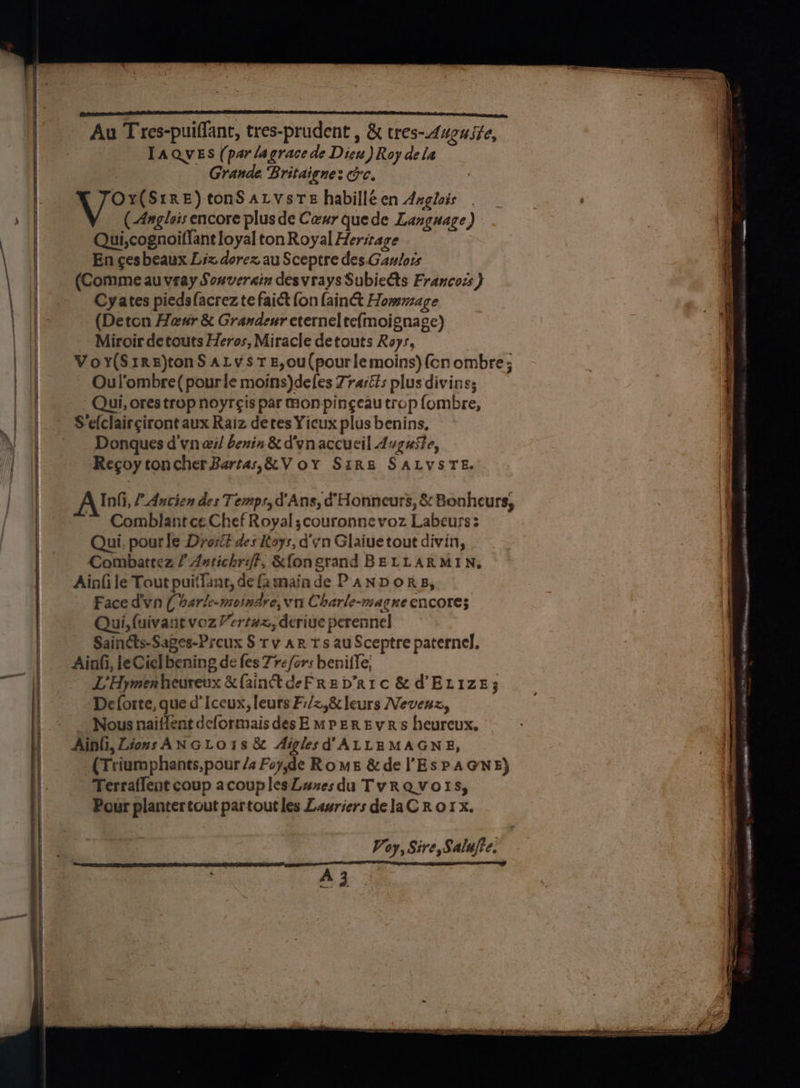 Au Tres-puiſſant, tres-prudent, & tres-Auguſte,
IAQVES (par la grace de Dieu) Roy de la
Grande Britaigne: &c.
VOY(SIRE) ton SALVSTE habillé en Anglois
(Anglois encore plus de Cœur que de Language)
Qui, cognoiſſant loyal ton Royal Heritage
En ces beaux Liz dorez au Sceptre des Gaulois
(Comme au vray Souverain des vrays Subiects Francois)
Cy ates pieds ſacrez te faict ſon ſainct Hommage
(De ton Hœur & Grandeur eternel teſmoignage)
Miroir de touts Heros, Miracle de touts Roys,
VOY(SIRE)ton SALVSTE, ou(pour le moins) ſon ombre;
Ou l'ombre(pour le moins)de ſes Traicts plus divins;
Qui, ores trop noyrçis par mon pinçeau trop ſombre,
S'eſclairçiront aux Raiz de tes Yieux plus benins,
Donques d'vn œil benin & d'vn accueil Auguſte,
Reçoy ton cher Bartas, & VOY SIRE SALVSTE.
AInſi, l'Ancien des Temps, d'Ans, d'Honneurs, & Bonheurs,
Comblant ce Chef Royal; couronne voz Labeurs:
Qui, pour le Droict des Roys, d'vn Glaiue tout divin,
Combattez l'Antichriſt, & ſon grand BELLARMIN,
Ainſi le Tout puiſſant, de ſa main de PANDORE,
Face d'vn Charle-moindre, vn Charle-magne encores;
Qui, ſuivant voz Vertuz, deriue perennel
Saincts-Sages-Preux STVARTS au Sceptre paternel.
Ainſi, le Ciel bening de ſes Treſors beniſſe,
L'Hymen heureux & ſainct de FREDARIC & d'ELIZE;
De ſorte, que d'Iceux, leurs Filz, & leurs Neveuz,
Nous naiſſent deſormais des EMPEREVRS heureux.
Ainſi, Lions ANGLOIS & Aigles d'ALLEMAGNE,
(Triumphants, pour la Foy, de ROME & de l'ESPAGNE)
Terraſſent coup a coup les Lunes du TVRQVOIS,
Pour planter tout par tout les Lauriers de la CROIX.
Voy, Sire, Saluſte.
A 3